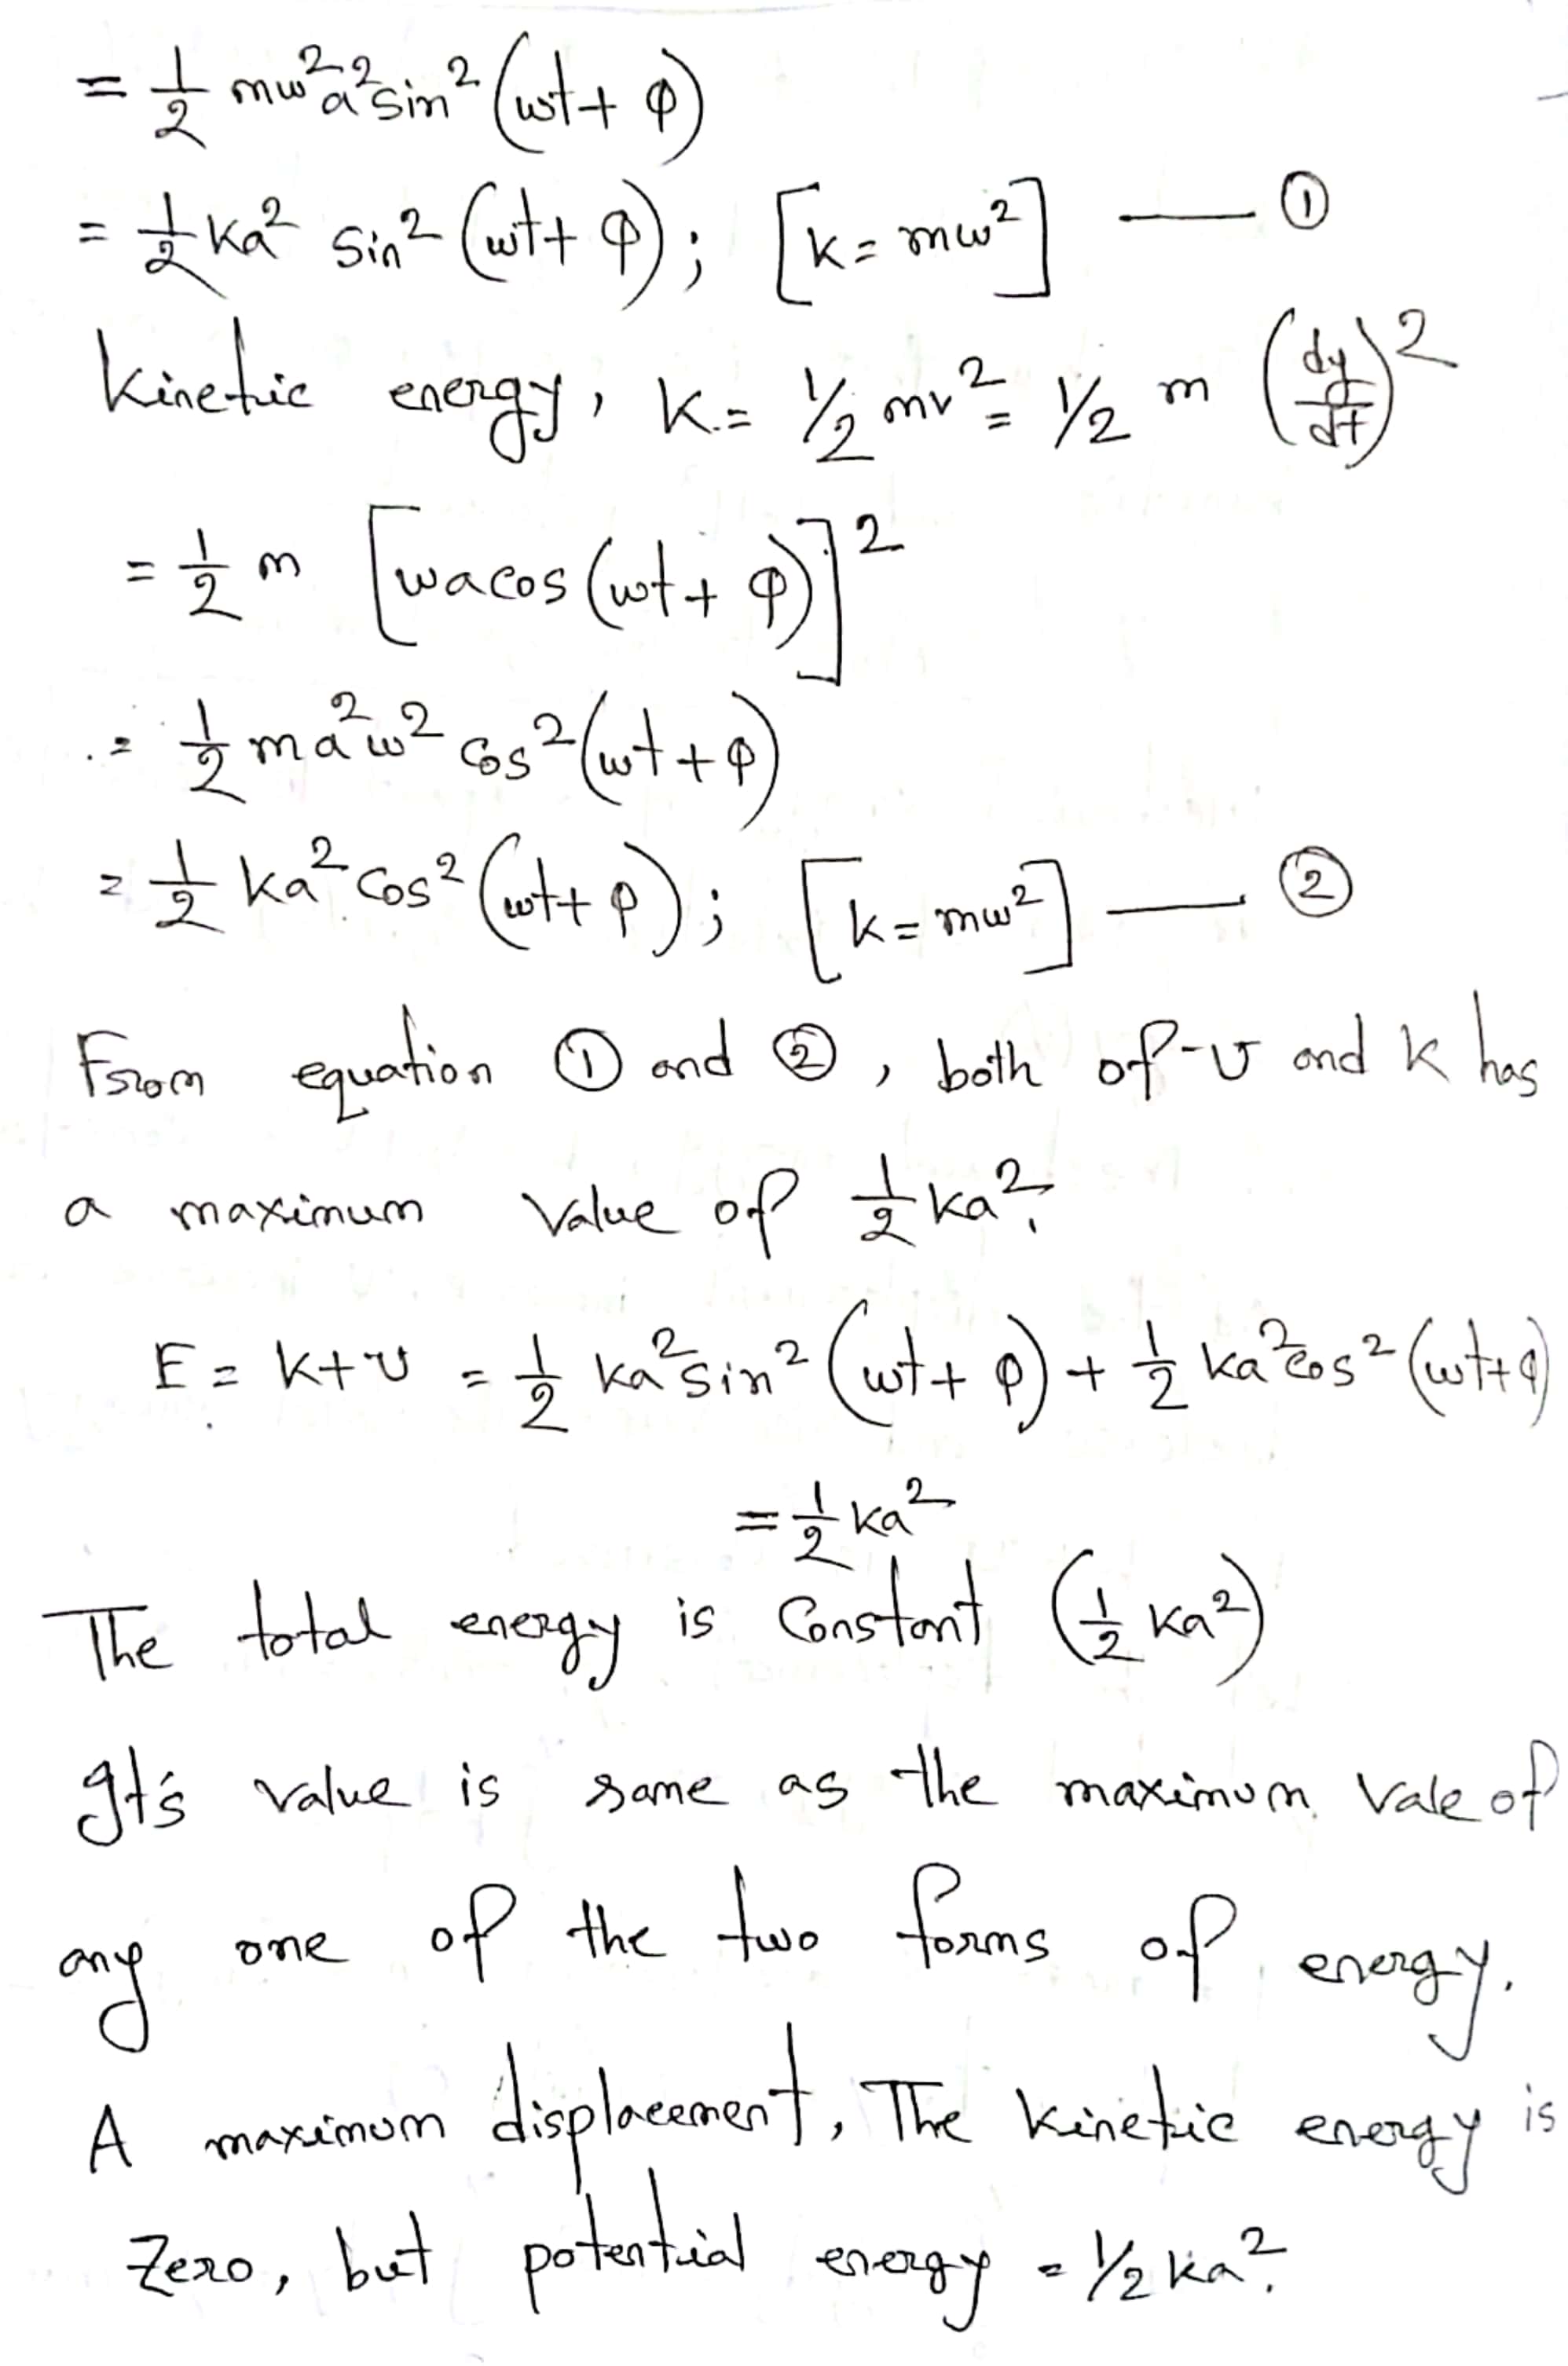 = 1/2 mω²a²sin²(ωt + φ)
= 1/2 ka² sin²(ωt + φ); [k = mω²] — ①
Kinetic energy, K = 1/2 mv² = 1/2 m (dy/dt)²
= 1/2 m [ωacos(ωt + φ)]²
= 1/2 ma²ω² cos²(ωt + φ)
= 1/2 ka² cos²(ωt + φ); [k = mω²] — ②
From equation ① and ②, both of U and K has
a maximum value of 1/2 ka².
E = K + U = 1/2 ka²sin²(ωt + φ) + 1/2 ka²cos²(ωt + φ)
= 1/2 ka²
The total energy is Constant (1/2 ka²)
It's value is same as the maximum vale of
any one of the two forms of energy.
A maximum displacement, The kinetic energy is
Zero, but potential energy = 1/2 ka².